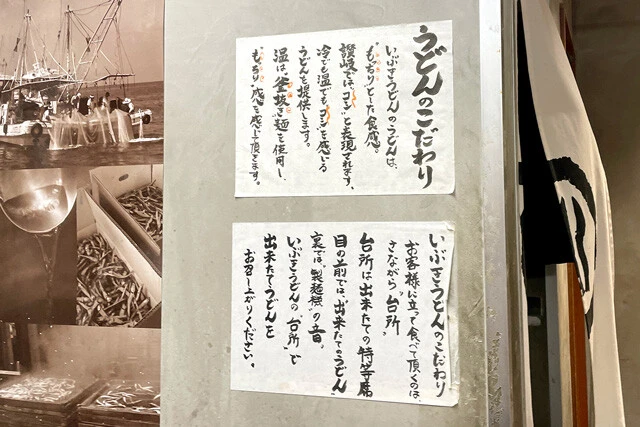 うどんのこだわり
いぶきうどんのうどんは、
もちりとした食感。
讃岐では、"コシ"と表現されます、
冷でも温でも"コシ"を感じる
うどんを提供します。
温は、釜抜き麺を使用し、
"もちり"感を感じて頂けます。
いぶきうどんのこだわり
お客様に立って食べて頂くのは、
さながら"台所"
台所は出来たての特等席
目の前では、"出来たてのうどん"
裏では、"製麺機"の音。
いぶきうどんの"台所"で
出来たてうどんを
お召し上がりください。